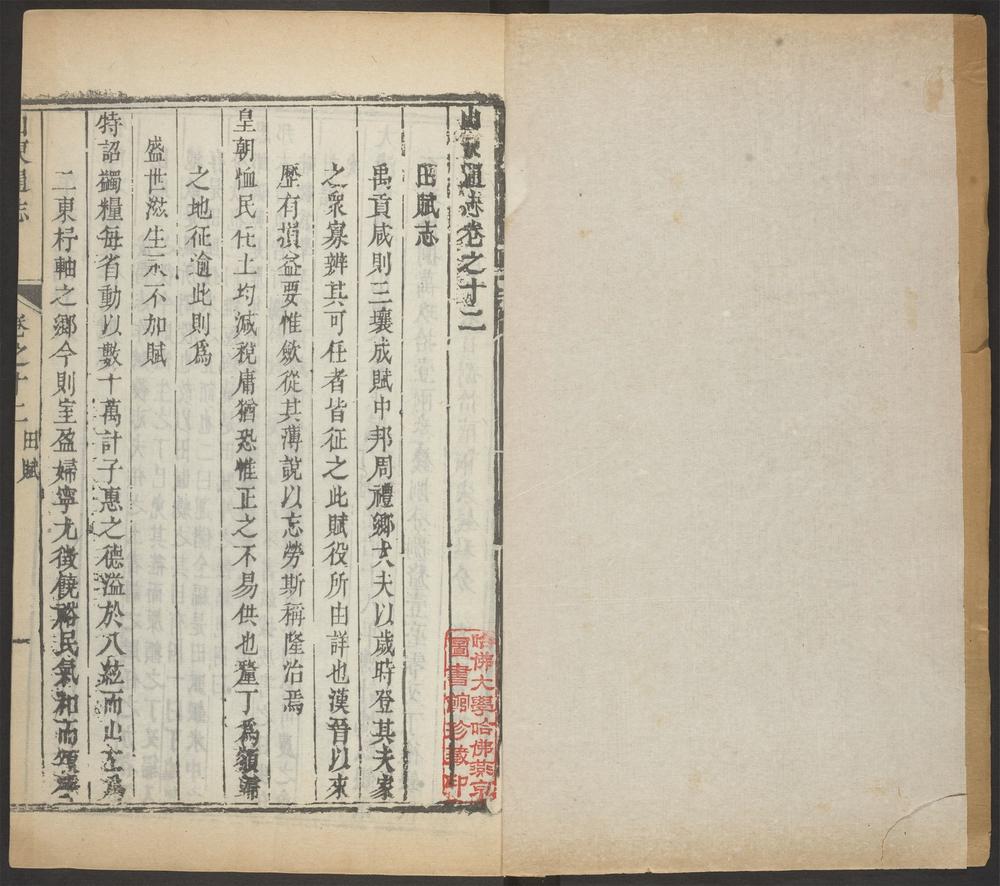 山東通志卷之十二
田賦志
禹貢咸則三壤成賦中邦周禮鄉大夫以歲時登其夫家
之衆寡辨其可任者皆征之此賦役所由詳也漢晉以來
歷有損益要惟斂從其薄說以忘勞斯稱隆治焉
皇朝恤民任土均減稅庸猶恐惟正之不易供也釐丁爲額歸
之地征逾此則爲
盛世滋生永不加賦
特詔蠲糧每省動以數十萬計子惠之德溢於八紘而山左爲
二東杼軸之鄉今則室盈婦寧尤徵饒裕民氣和而頌聲
山東通志
卷之十二
田賦
哈佛大學哈佛燕京
圖書館珍藏印